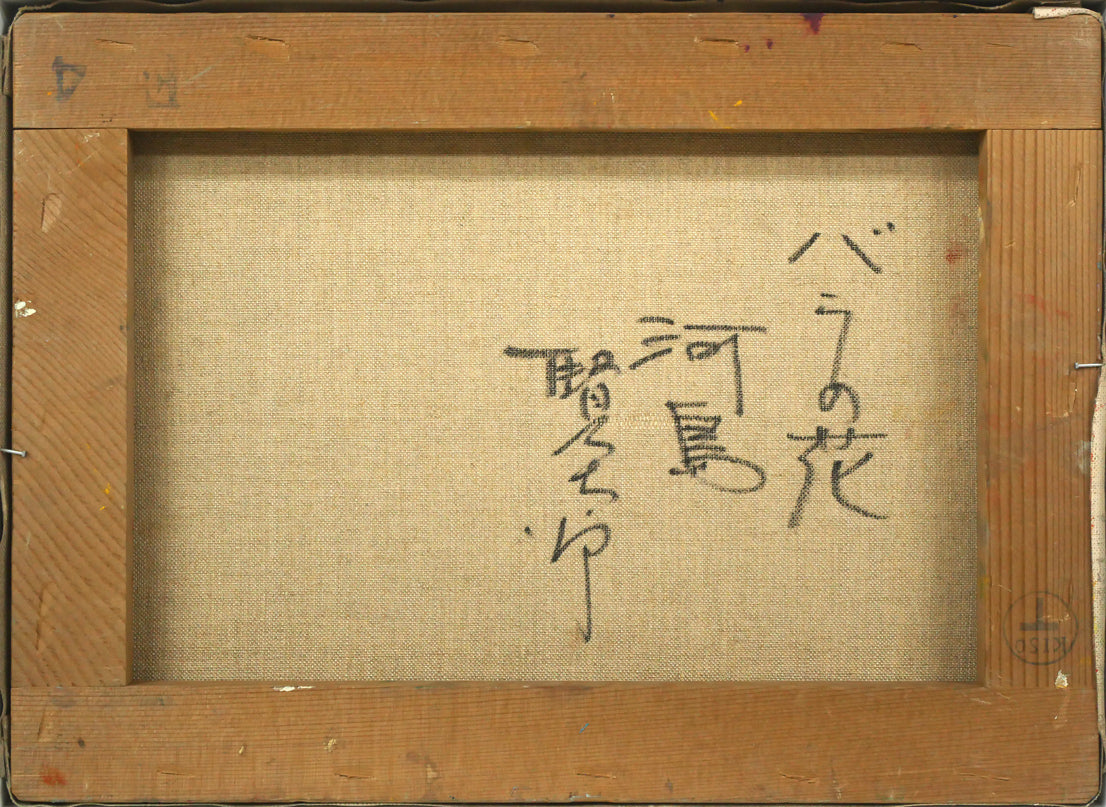 バラの花
河島
賢
F 4
KISO